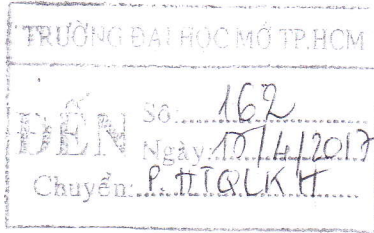 TRƯỜNG ĐẠI HỌC MỞ TP.HCM
ĐẾN
Số: 162
Ngày: 10/4/2017
Chuyển: P. HTQLKH